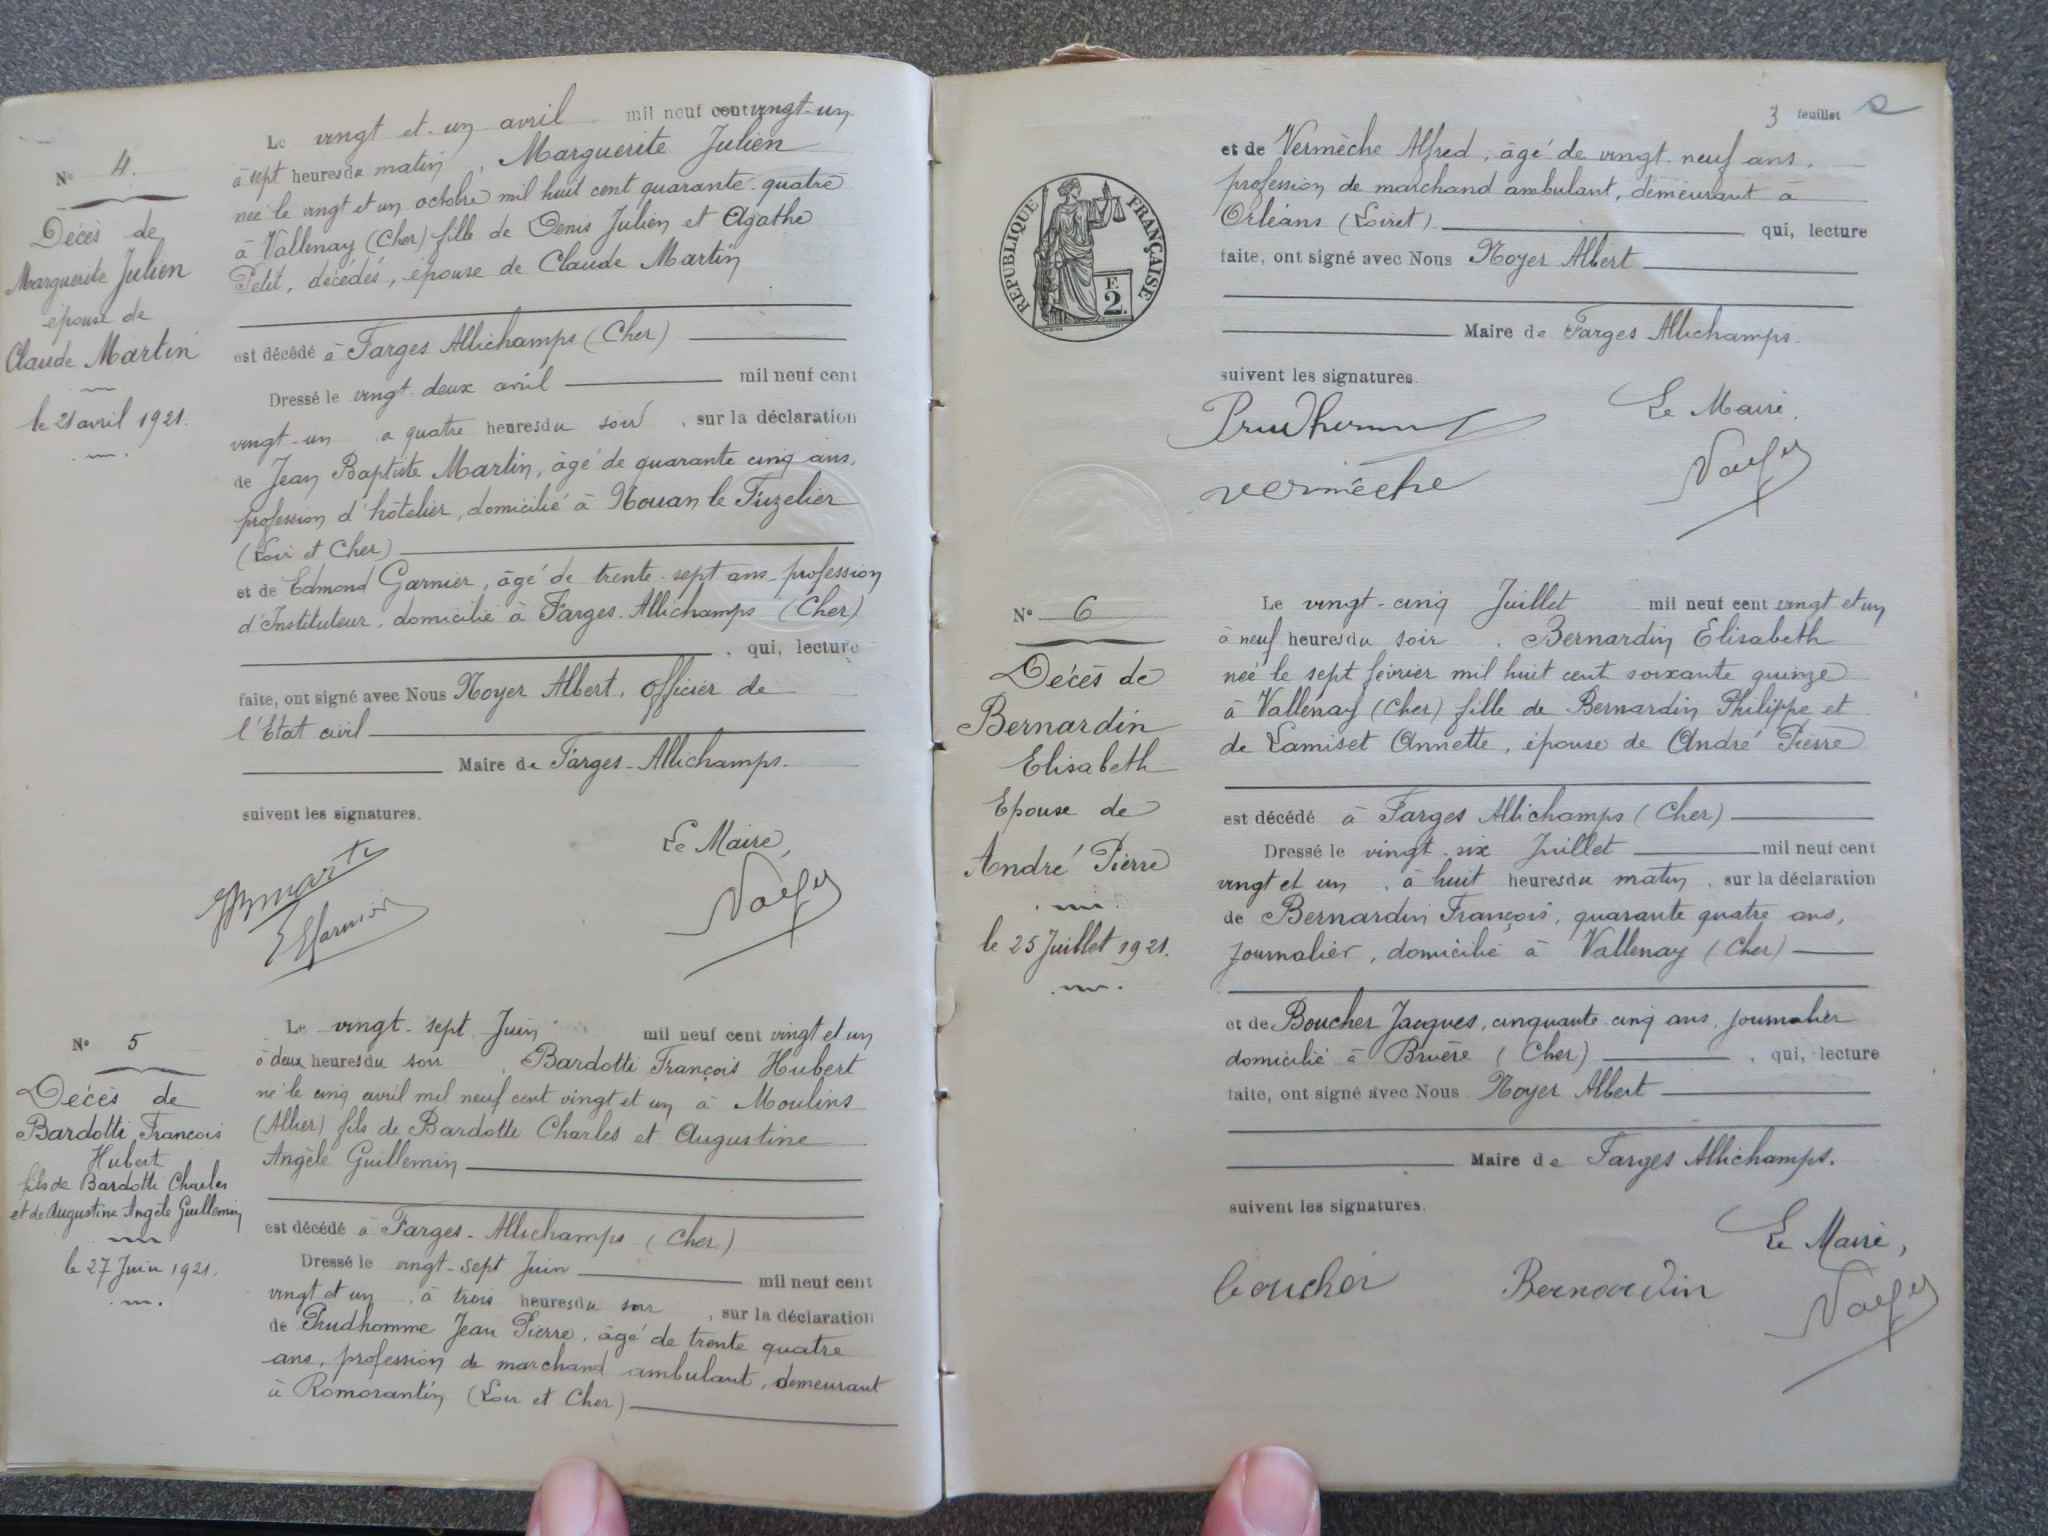 N° 4.
Décès de
Marguerite Julien
épouse de
Claude Martin
le 21 avril 1921.
Le vingt et un avril mil neuf cent vingt-un
à sept heures du matin, Marguerite Julien
née le vingt et un octobre mil huit cent quarante-quatre
à Vallenay (Cher) fille de Denis Julien et Agathe
Petit, décédés, épouse de Claude Martin
est décédé à Farges Allichamps (Cher)
Dressé le vingt-deux avril mil neuf cent
vingt-un à quatre heures du soir, sur la déclaration
de Jean Baptiste Martin, âgé de quarante cinq ans,
profession d'hôtelier, domicilié à Nouan le Fuzelier
(Loir et Cher)
et de Edmond Garnier, âgé de trente-sept ans profession
d'Instituteur, domicilié à Farges-Allichamps (Cher)
, qui, lecture
faite, ont signé avec Nous Noyer Albert, officier de
l'Etat civil
Maire de Farges-Allichamps.
suivent les signatures.
Le Maire,
N° 5
Décès de
Bardotti François
Hubert
fils de Bardotti Charles
et de Augustine Angèle Guillemin
le 27 Juin 1921.
Le vingt-sept Juin mil neuf cent vingt et un
à deux heures du soir, Bardotti François Hubert
né le cinq avril mil neuf cent vingt et un à Moulins
(Allier) fils de Bardotti Charles et Augustine
Angèle Guillemin
est décédé à Farges-Allichamps (Cher)
Dressé le vingt-sept Juin mil neuf cent
vingt et un, à trois heures du soir, sur la déclaration
de Prudhomme Jean Pierre, âgé de trente quatre
ans, profession de marchand ambulant, demeurant
à Romorantin (Loir et Cher)
3 feuillet
RÉPUBLIQUE FRANÇAISE
F.
2.
et de Vermèche Alfred, âgé de vingt-neuf ans,
profession de marchand ambulant, demeurant à
Orléans (Loiret) qui, lecture
faite, ont signé avec Nous Noyer Albert
Maire de Farges Allichamps.
suivent les signatures.
Le Maire.
Prudhomme
vermèche
N° 6
Décès de
Bernardin
Elisabeth
Epouse de
André Pierre
le 25 Juillet 1921.
Le vingt-cinq Juillet mil neuf cent vingt et un
à neuf heures du soir, Bernardin Elisabeth
née le sept février mil huit cent soixante quinze
à Vallenay (Cher) fille de Bernardin Philippe et
de Lamiset Annette, épouse de André Pierre
est décédé à Farges Allichamps (Cher)
Dressé le vingt-six Juillet mil neuf cent
vingt et un, à huit heures du matin, sur la déclaration
de Bernardin François, quarante quatre ans,
journalier, domicilié à Vallenay (Cher)
et de Boucher Jacques, cinquante cinq ans, journalier
domicilié à Bruère (Cher), qui, lecture
faite, ont signé avec Nous Noyer Albert
Maire de Farges Allichamps.
suivent les signatures.
Le Maire,
boucher Bernardin